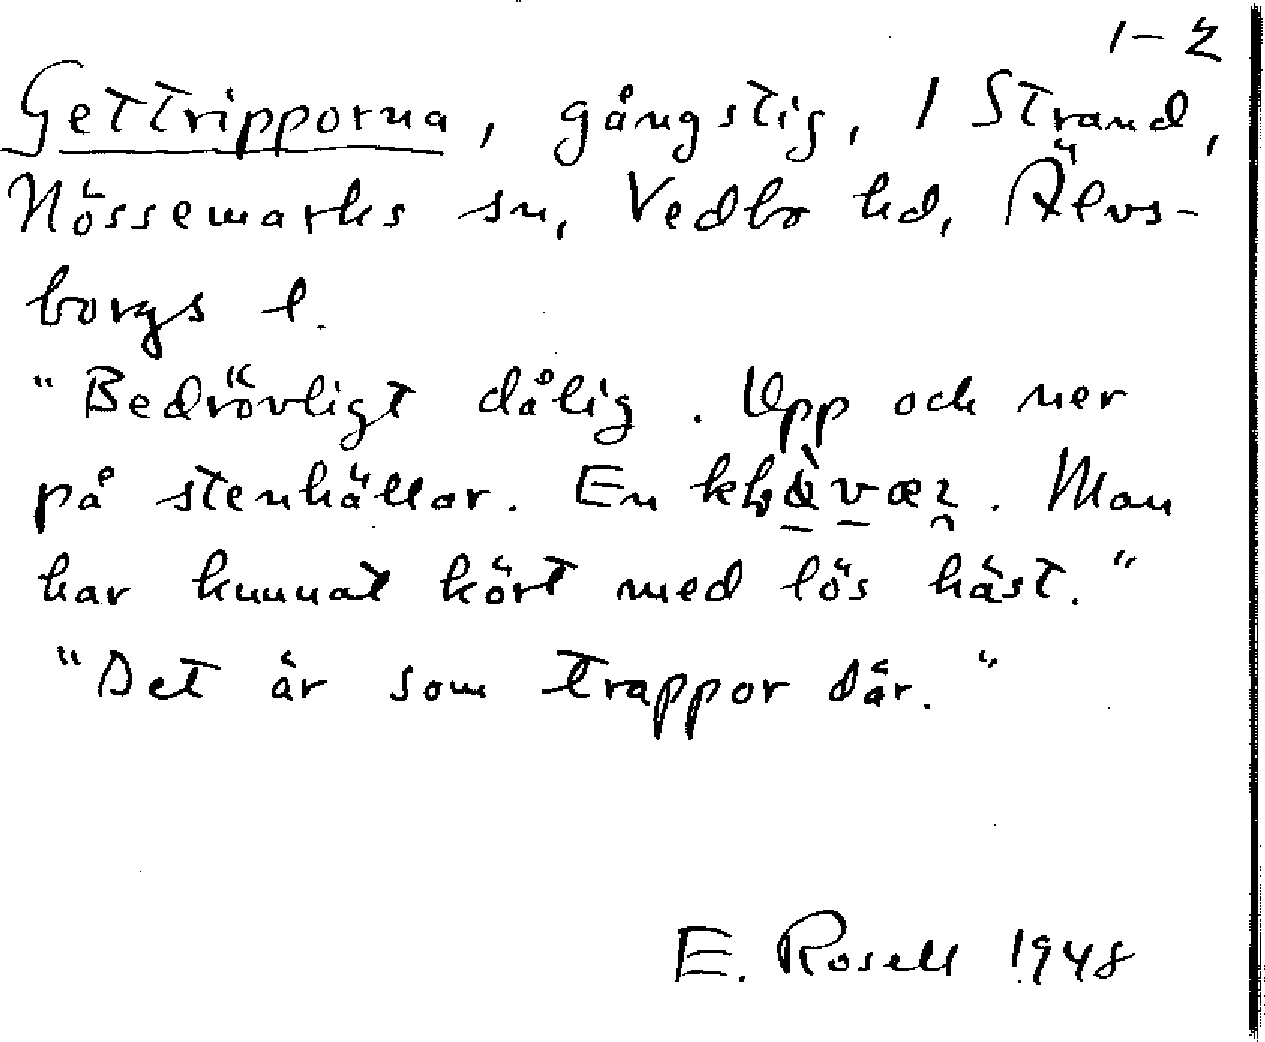 1-2
Gettripporna, gångstig, 1 Strand,
Nössemarks sn, Vedbo hd, Älvs-
borgs l.
"Bedrövligt dålig. Upp och ner
på stenhällar. En . Man
har kunnat kört med lös häst."
"Det är som trappor där."
E. Rosell 1948